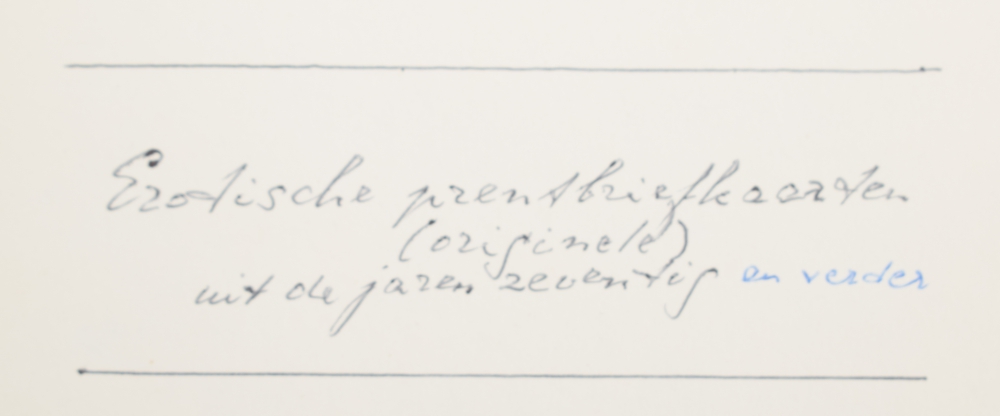 Erotische prentbriefkaarten
(originele)
uit de jaren zeventig en verder